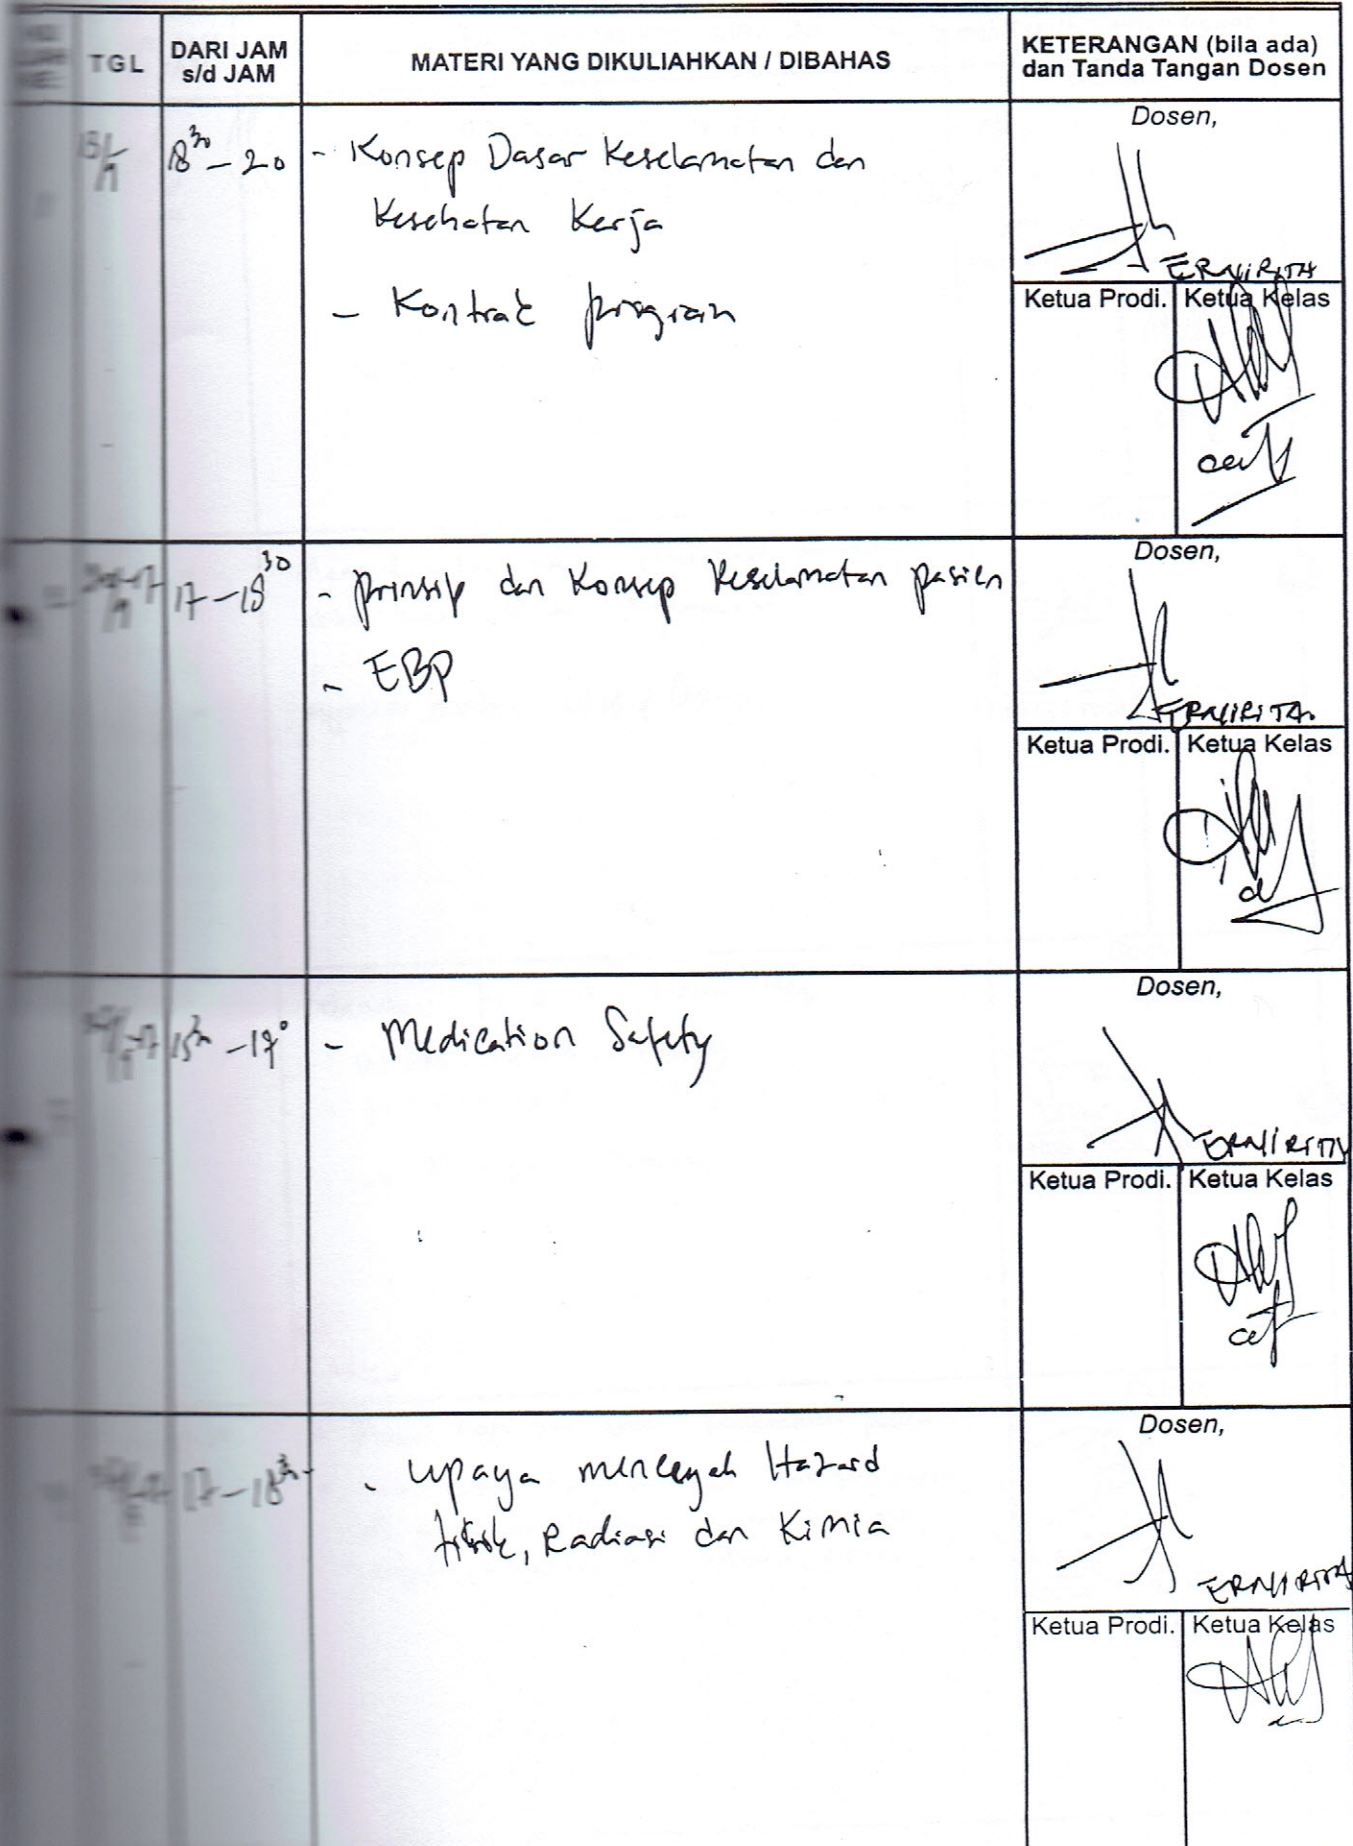 TGL
DARI JAM
s/d JAM
MATERI YANG DIKULIAHKAN / DIBAHAS
KETERANGAN (bila ada)
dan Tanda Tangan Dosen
18³⁰ - 20
- Konsep Dasar Keselamatan dan
Kesehatan Kerja
- Kontrak program
Dosen,
ERNIRITA
Ketua Prodi. Ketua Kelas
17 - 18³⁰
- prinsip dan Konsep Keselamatan pasien
- EBP
Dosen,
ERNIRITA.
Ketua Prodi. Ketua Kelas
15³⁰ - 17⁰
- Medication Safety
Dosen,
ERNIRITA
Ketua Prodi. Ketua Kelas
17 - 18³⁰
- upaya mencegah Hazard
fisik, Radiasi dan Kimia
Dosen,
ERNIRITA
Ketua Prodi. Ketua Kelas